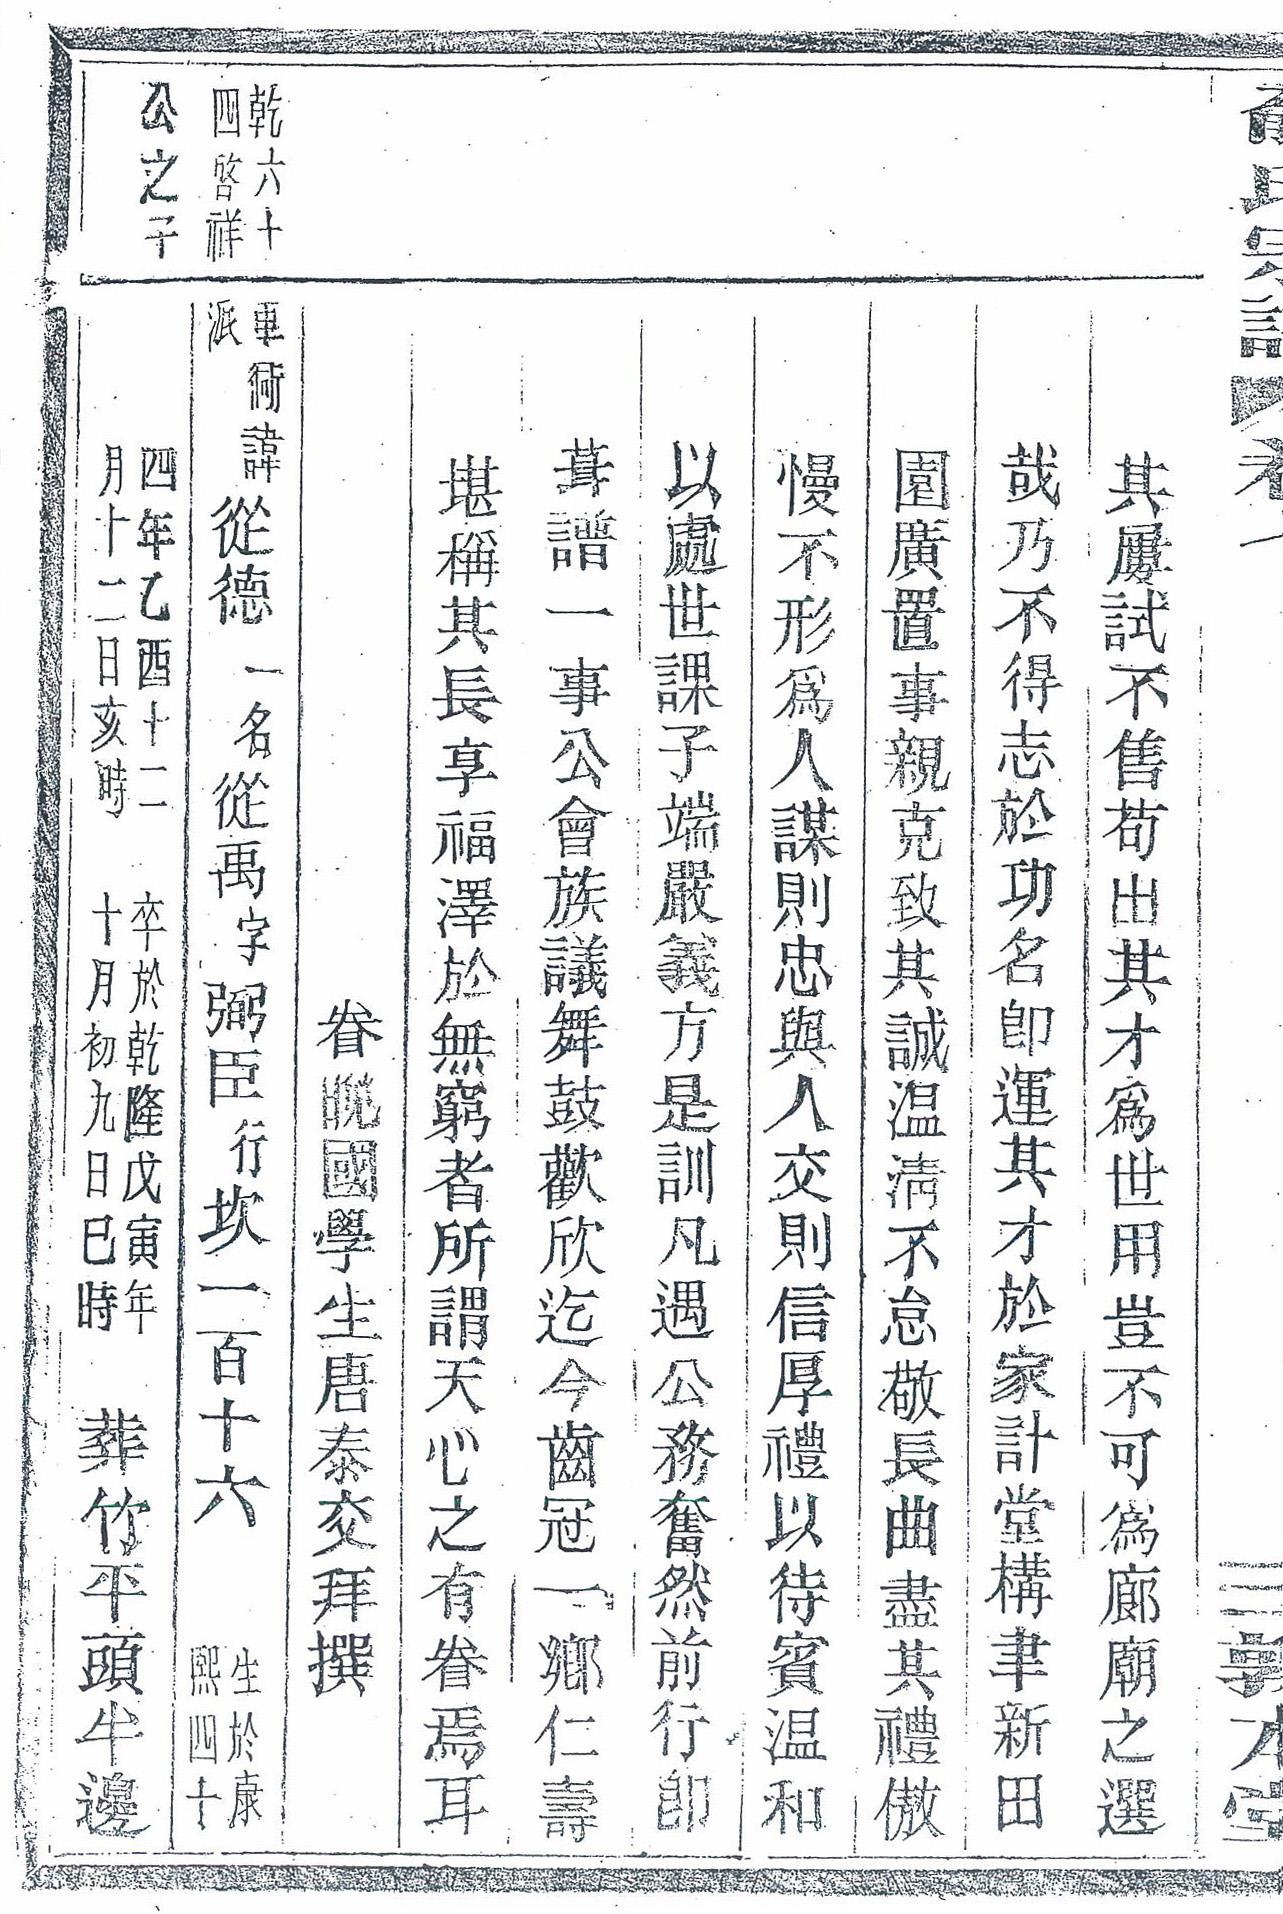 俞氏宗譜 卷一
三 敦本堂
其屢試不售苟出其才爲世用豈不可爲廊廟之選
哉乃不得志於功名卽運其才於家計堂構聿新田
園廣置事親克致其誠温凊不怠敬長曲盡其禮傲
慢不形爲人謀則忠與人交則信厚禮以待賓温和
以處世課子端嚴義方是訓凡遇公務奮然前行卽
葺譜一事公會族議舞鼓歡欣迄今齒冠一鄉仁壽
堪稱其長享福澤於無窮者所謂天心之有眷焉耳
眷晚國學生唐泰交拜撰
乾六十
四啓祥
公之子
車衕
派
諱從德一名從禹字弼臣行坎一百十六
生於康
熙四十
四年乙酉十二
月十二日亥時
卒於乾隆戊寅年
十月初九日巳時
葬竹平頭牛邊